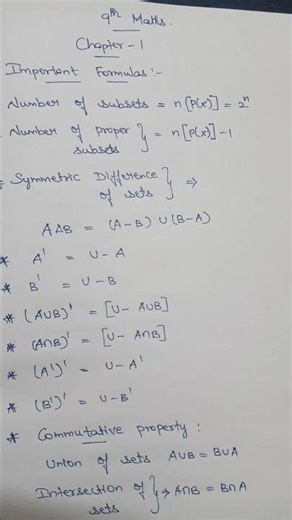 9th Maths.
Chapter-1
Important Formulas:-
Number of subsets = n[P(x)] = 2ⁿ
Number of proper subsets } = n[P(x)]-1
Symmetric Difference of sets } ⇒
A∆B = (A-B) ∪ (B-A)
* A' = U - A
* B' = U - B
* (A∪B)' = [U - A∪B]
* (A∩B)' = [U - A∩B]
* (A')' = U - A'
* (B')' = U - B'
* Commutative property :
Union of sets A∪B = B∪A
Intersection of sets } → A∩B = B∩A